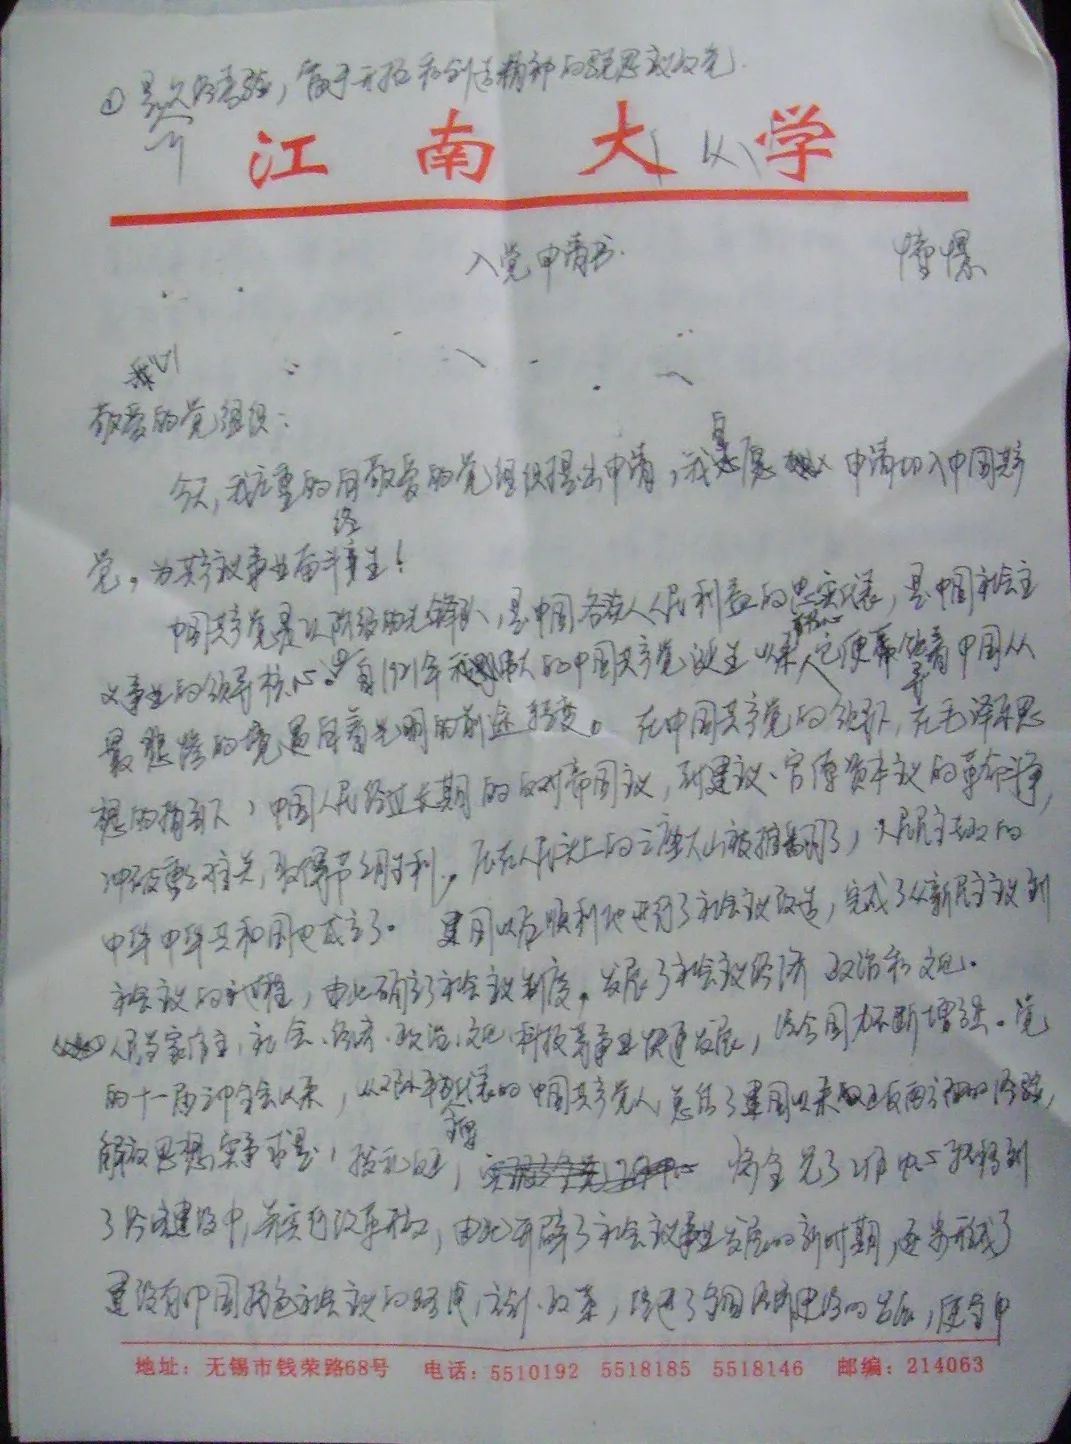 江南大学
入党申请书
憧憬
敬爱的党组织：
今天，我庄重的向敬爱的党组织提出申请，我自愿申请加入中国共产
党。为共产主义事业奋斗终生！
中国共产党是工人阶级的先锋队，是中国各族人民利益的忠实代表，是中国社会主
义事业的领导核心。自1921年伟大的中国共产党诞生以来，它便领导着中国从
最悲惨的境遇向着光明的前途转变。在中国共产党的领导下，在毛泽东思
想的指引下，中国人民经过长期的反对帝国主义，封建主义、官僚资本主义的革命斗争，
冲破重重难关，取得节节胜利，压在人民头上的三座大山被推翻了，人民民主专政的
中华中华共和国也成立了。建国以后顺利地进行了社会主义改造，完成了从新民主主义到
社会主义的过渡，由此确立了社会主义制度，发展了社会主义经济 政治和文化。
人民当家作主，社会、经济、政治、文化、科技等事业快速发展，综合国力不断增强。党
的十一届三中全会以来，以邓小平为代表的中国共产党人，总结了建国以来的正反两方面的经验，
解放思想实事求是，将全党工作中心转移到
了经济建设中，并实行改革开放，由此开辟了社会主义事业发展的新时期，逐步形成了
建设有中国特色社会主义的路线，方针、政策，促进了全国经济建设的发展，使
地址：无锡市钱荣路68号 电话：5510192 5518185 5518146 邮编：214063